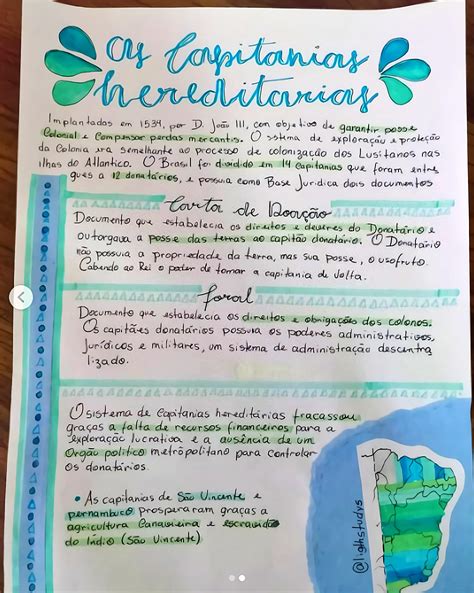 As Capitanias
hereditarias
Implantadas em 1534, por D. João III, com objetivo de garantir posse
Colonial e Compensar perdas mercantis. O sistema de exploração e proteção
da Colonia era semelhante ao processo de colonização dos Lusitanos nas
ilhas do Atlantico. O Brasil foi dividido em 14 Capitanias que foram entre
gues a 12 donatários, e possuia como Base Juridica dois documentos
Carta de Doação
Documento que estabelecia os direitos e deveres do Donatário e
outorgava a posse das terras ao capitão donatário. O Donatário
não possuia a propriedade da terra, mas sua posse, o usofruto.
Cabendo ao Rei o poder de tomar a capitania de volta.
foral
Documento que estabelecia os direitos e obrigações dos colonos.
Os capitães donatários possuia os poderes administrativos,
jurídicos e militares, um sistema de administração descentra
lizado.
O sistema de Capitanias hereditárias fracassou
graças a falta de recursos financeiros para a
exploração lucrativa e a ausência de um
Orgão politico metropolitano para controlar
os donatários.
• As capitanias de São Vincente e
pernambuco prosperaram graças a
agricultura Canavieira e escravidão
do Índio (São Vincente)
@lighstudys